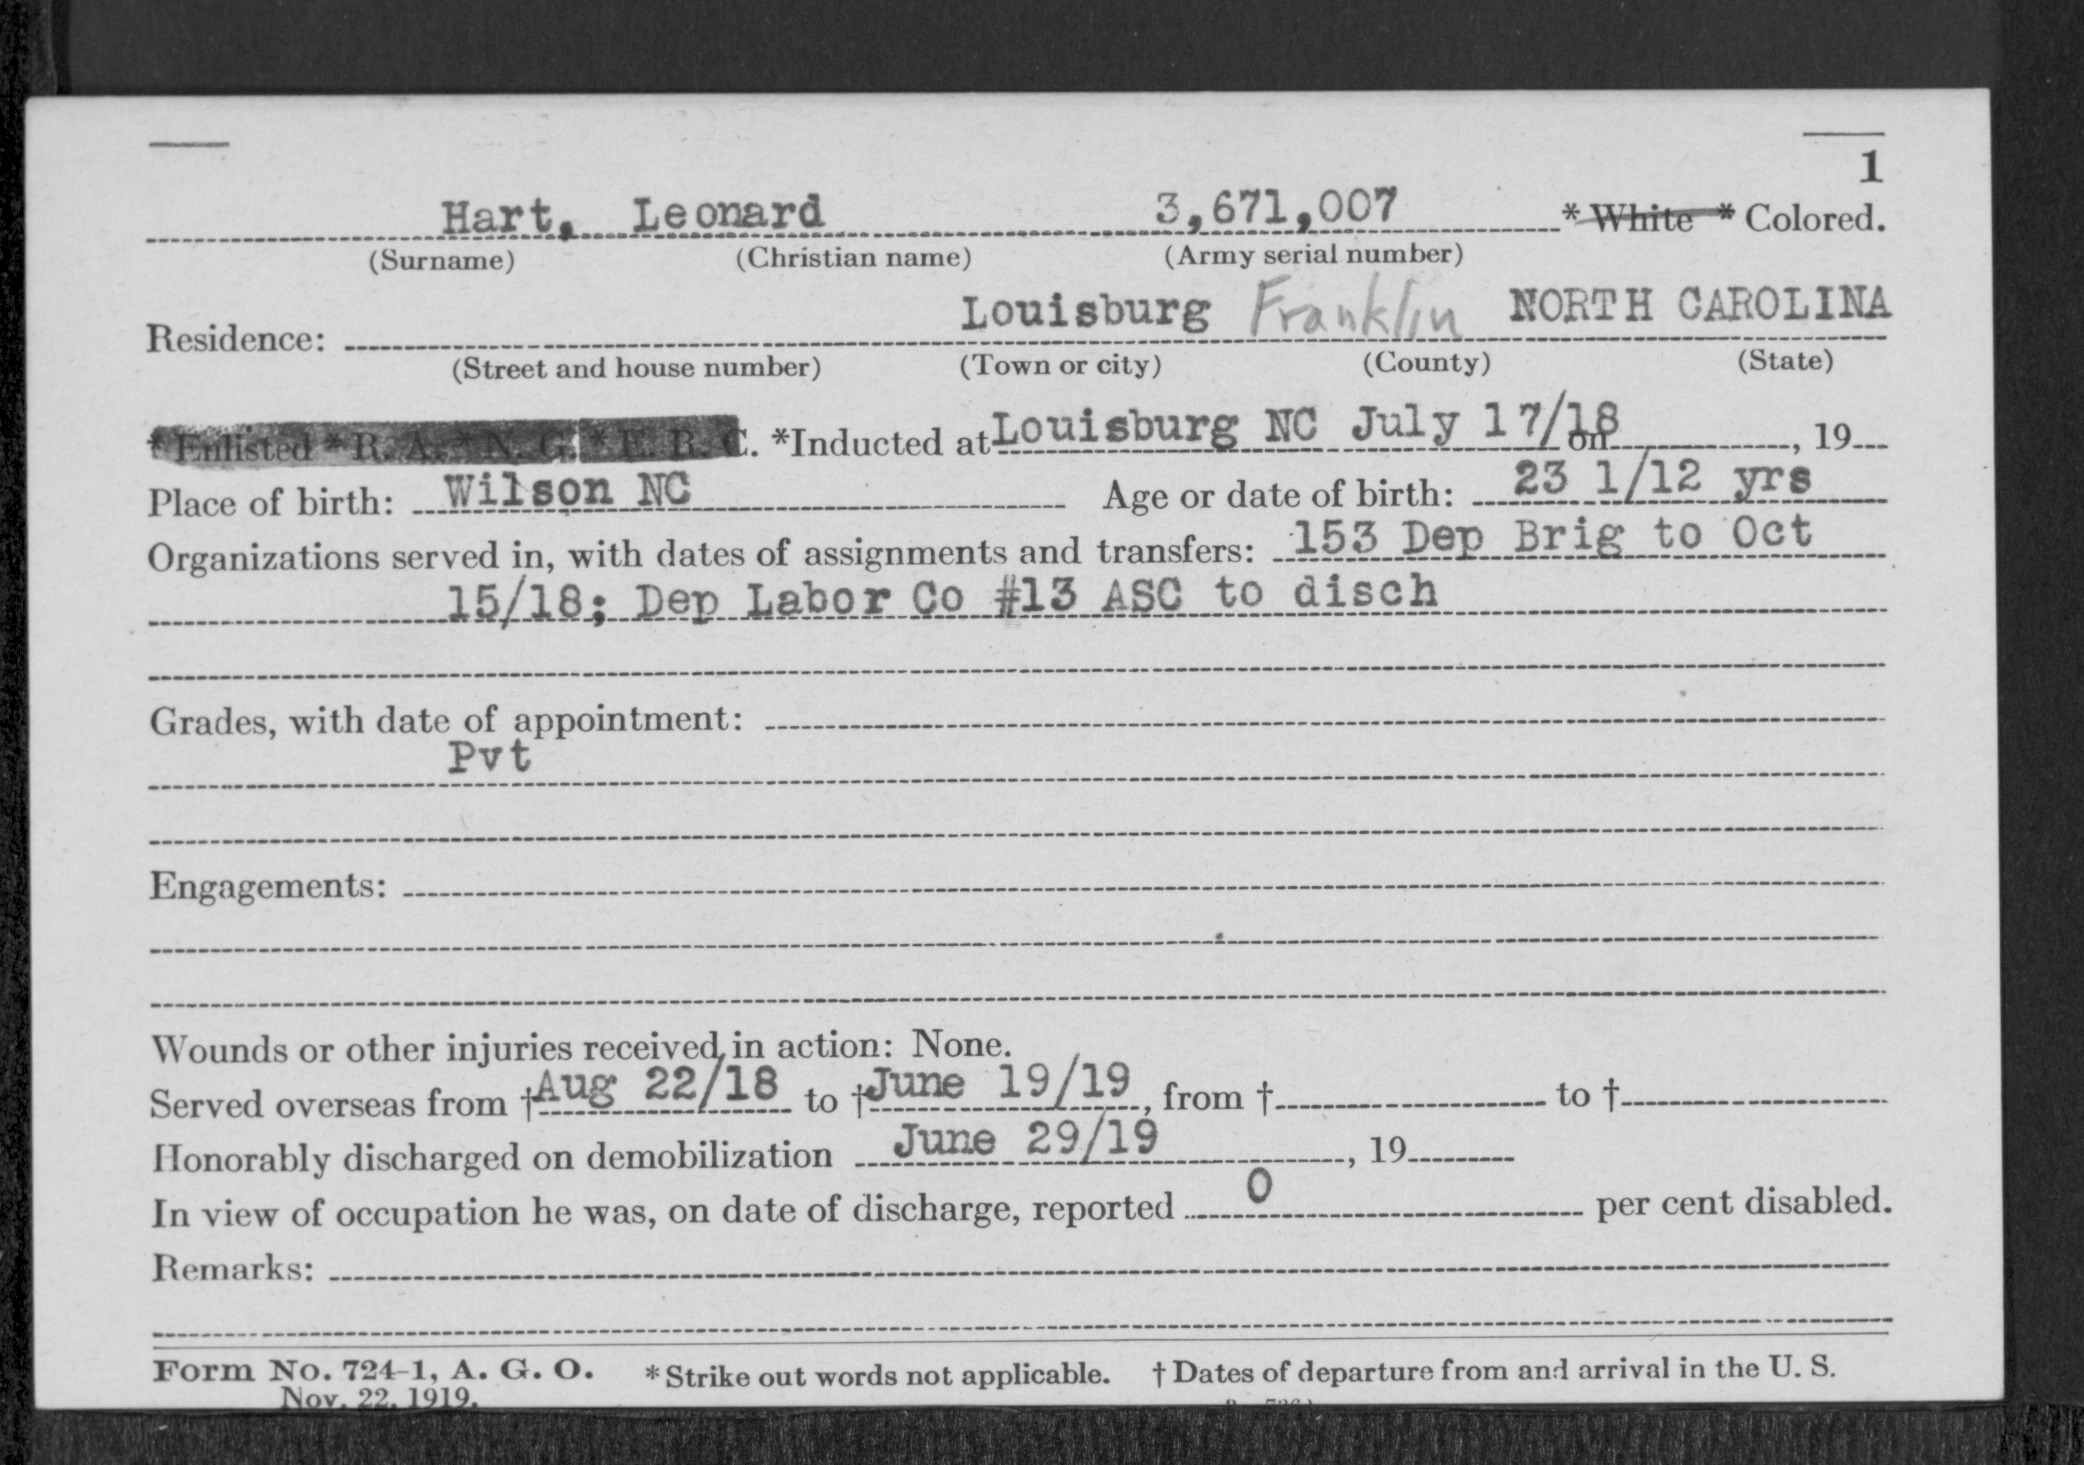 1
Hart, Leonard 3,671,007 * White * Colored.
(Surname) (Christian name) (Army serial number)
Louisburg Franklin NORTH CAROLINA
Residence:
(Street and house number) (Town or city) (County) (State)
* Enlisted * R. A. * N. G. * E. R. C. *Inducted at Louisburg NC July 17/18 on , 19
Place of birth: Wilson NC Age or date of birth: 23 1/12 yrs
Organizations served in, with dates of assignments and transfers: 153 Dep Brig to Oct
15/18; Dep Labor Co #13 ASC to disch
Grades, with date of appointment:
Pvt
Engagements:
Wounds or other injuries received in action: None.
Served overseas from † Aug 22/18 to † June 19/19, from † to †
Honorably discharged on demobilization June 29/19 , 19
In view of occupation he was, on date of discharge, reported 0 per cent disabled.
Remarks:
Form No. 724-1, A. G. O. * Strike out words not applicable. † Dates of departure from and arrival in the U. S.
Nov. 22, 1919.